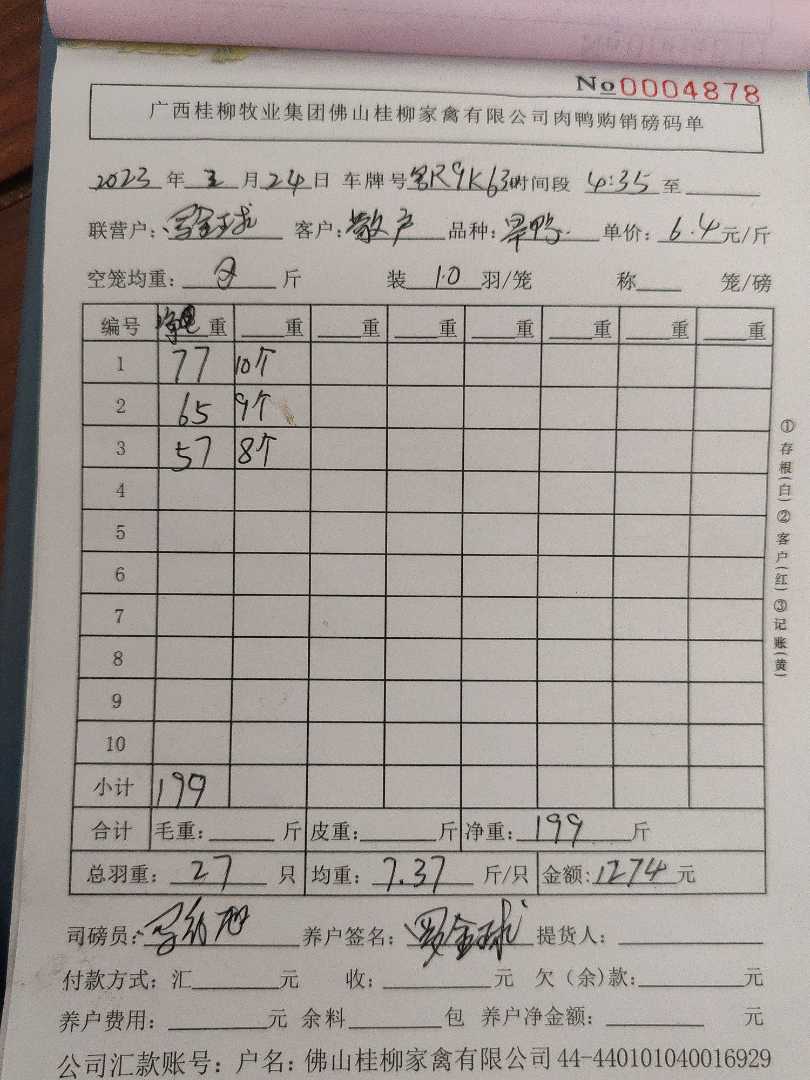 No0004878
广西桂柳牧业集团佛山桂柳家禽有限公司肉鸭购销磅码单
2023 年 月 24 日 车牌号 R9K63 时间段 4:35 至
联营户: 金球 客户: 散户 品种: 旱鸭 单价: 6.4 元/斤
空笼均重: 斤 装 10 羽/笼 称 笼/磅
编号 净重 重 重 重 重 重 重 重
1 77 10个
2 65 9个
3 57 8个
4
5
6
7
8
9
10
小计 199
合计 毛重: 斤 皮重: 斤 净重: 199 斤
总羽重: 27 只 均重: 7.37 斤/只 金额: 1274 元
司磅员: 养户签名: 罗金球 提货人:
付款方式: 汇 元 收: 元 欠(余)款: 元
养户费用: 元 余料 包 养户净金额: 元
公司汇款账号: 户名: 佛山桂柳家禽有限公司 44-440101040016929
①存根(白)②客户(红)③记账(黄)